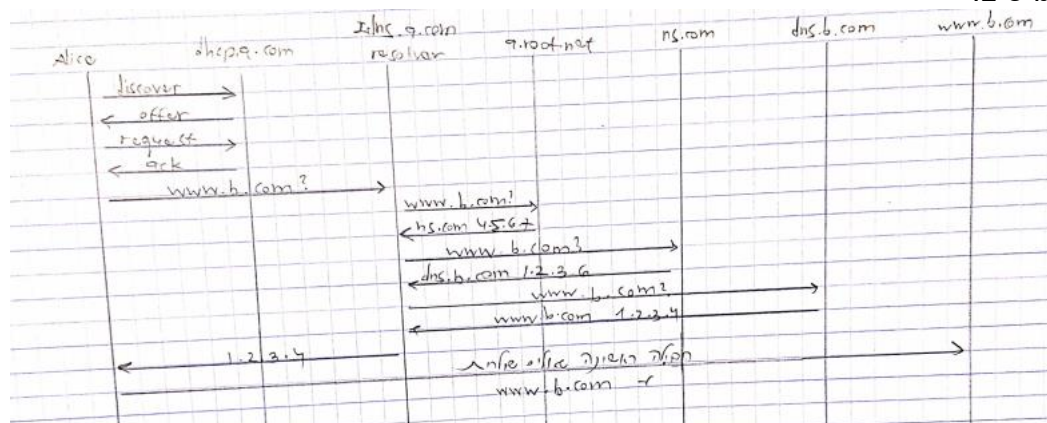 Alice
dhcp.a.com
resolver
a.root.net
ns.com
dns.b.com
www.b.com
discover
offer
request
ack
www.b.com?
www.b.com?
ns.com 4.5.6.7
www.b.com?
dns.b.com 1.2.3.6
www.b.com?
www.b.com 1.2.3.4
1.2.3.4
חבילה ראשונה שאליס שולחת
www.b.com ל